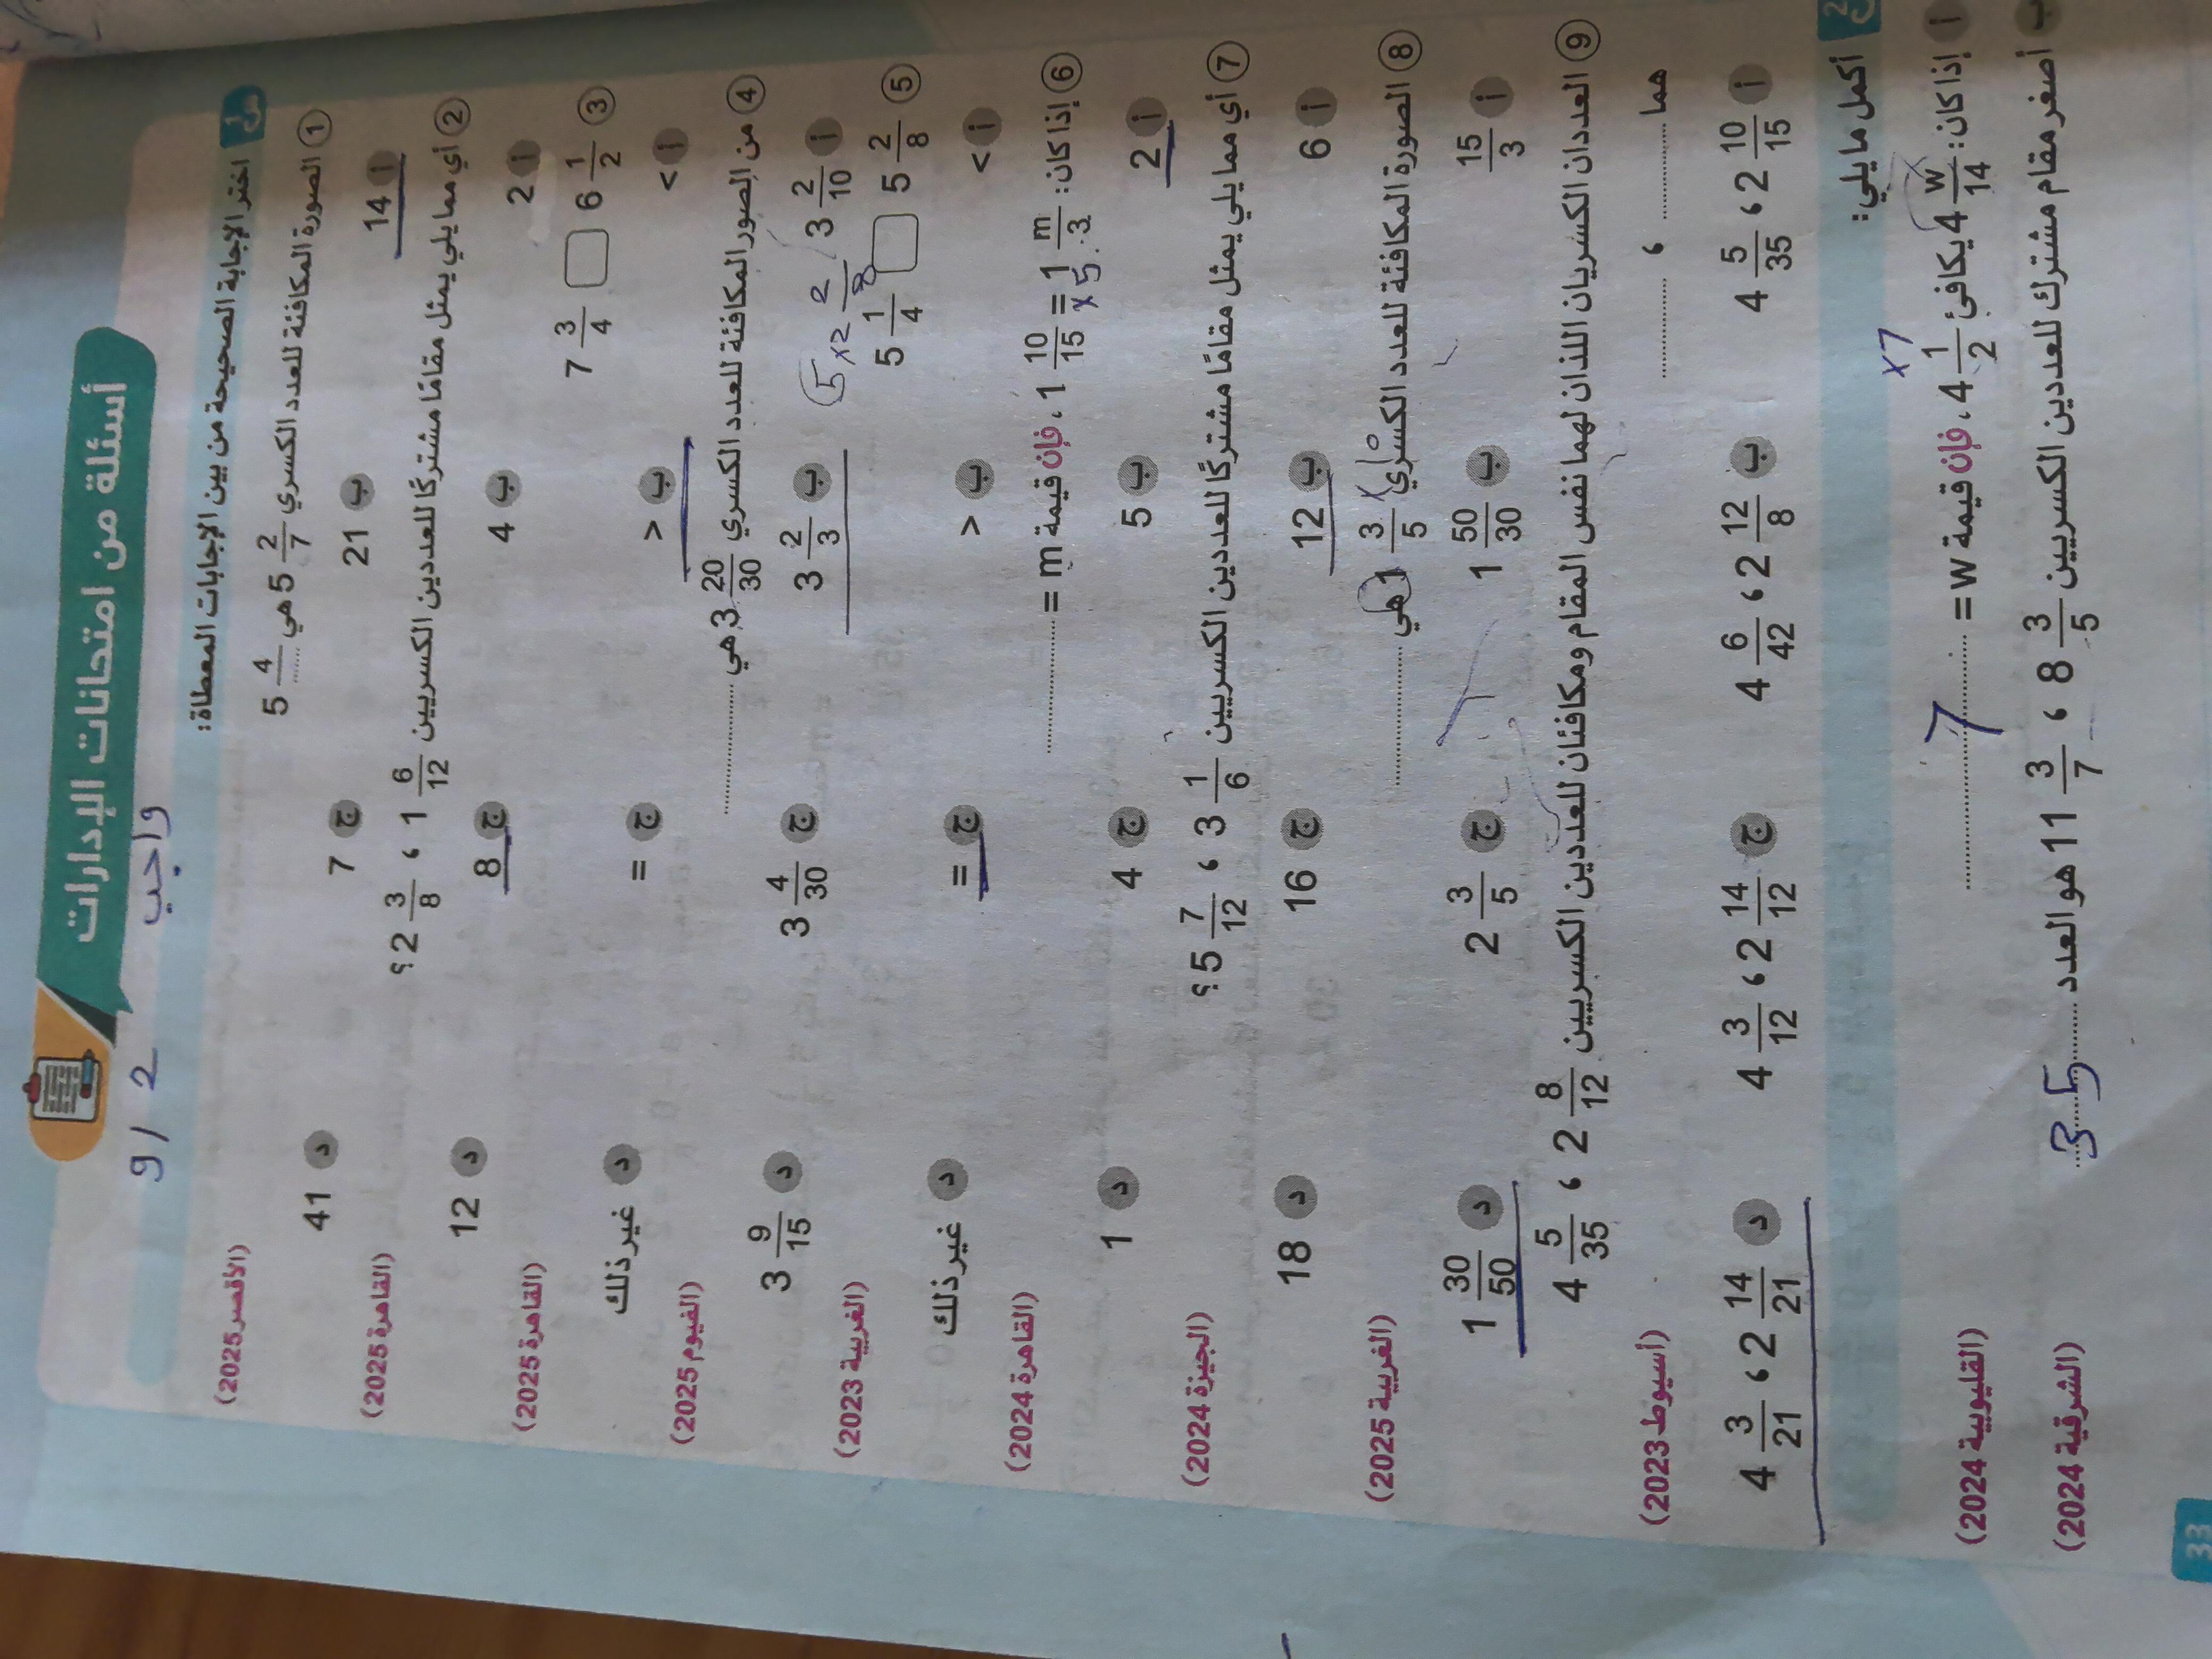 أسئلة من امتحانات الإدارات
واجب 2 / 9
س1 اختر الإجابة الصحيحة من بين الإجابات المعطاة:
① الصورة المكافئة للعدد الكسري 5 2/7 هي 5 4/...... (الأقصر 2025)
أ 14 ب 21 ج 7 د 41
② أي مما يلي يمثل مقامًا مشتركًا للعددين الكسريين 1 6/12 ، 2 3/8 ؟ (القاهرة 2025)
أ 2 ب 4 ج 8 د 12
③ 7 3/4 □ 6 1/2 (القاهرة 2025)
أ < ب > ج = د غير ذلك
④ من الصور المكافئة للعدد الكسري 3 20/30 هي .............. (الفيوم 2025)
أ 3 2/10 ب 3 2/3 ج 3 4/30 د 3 9/15
5 ×2 2/8
⑤ 5 1/4 □ 5 2/8 (الغربية 2023)
أ < ب > ج = د غير ذلك
⑥ إذا كان: 1 10/15 = 1 m/3 ، فإن قيمة m = .............. (القاهرة 2024)
×5
أ 2 ب 5 ج 4 د 1
⑦ أي مما يلي يمثل مقامًا مشتركًا للعددين الكسريين 3 1/6 ، 5 7/12 ؟ (الجيزة 2024)
أ 6 ب 12 ج 16 د 18
⑧ الصورة المكافئة للعدد الكسري 1 3/5 هي .............. (الغربية 2025)
أ 15/3 ب 1 50/30 ج 2 3/5 د 1 30/50
⑨ العددان الكسريان اللذان لهما نفس المقام ومكافئان للعددين الكسريين 2 8/12 ، 4 5/35
هما .............. ، .............. (أسيوط 2023)
أ 4 5/35 ، 2 10/15 ب 4 6/42 ، 2 12/8 ج 4 3/12 ، 2 14/12 د 4 3/21 ، 2 14/21
س2 أكمل ما يلي:
×7
أ إذا كان: 4 w/14 يكافئ 4 1/2 ، فإن قيمة w = ......7...... (القليوبية 2024)
ب أصغر مقام مشترك للعددين الكسريين 8 3/5 ، 11 3/7 هو العدد ......35...... (الشرقية 2024)
33